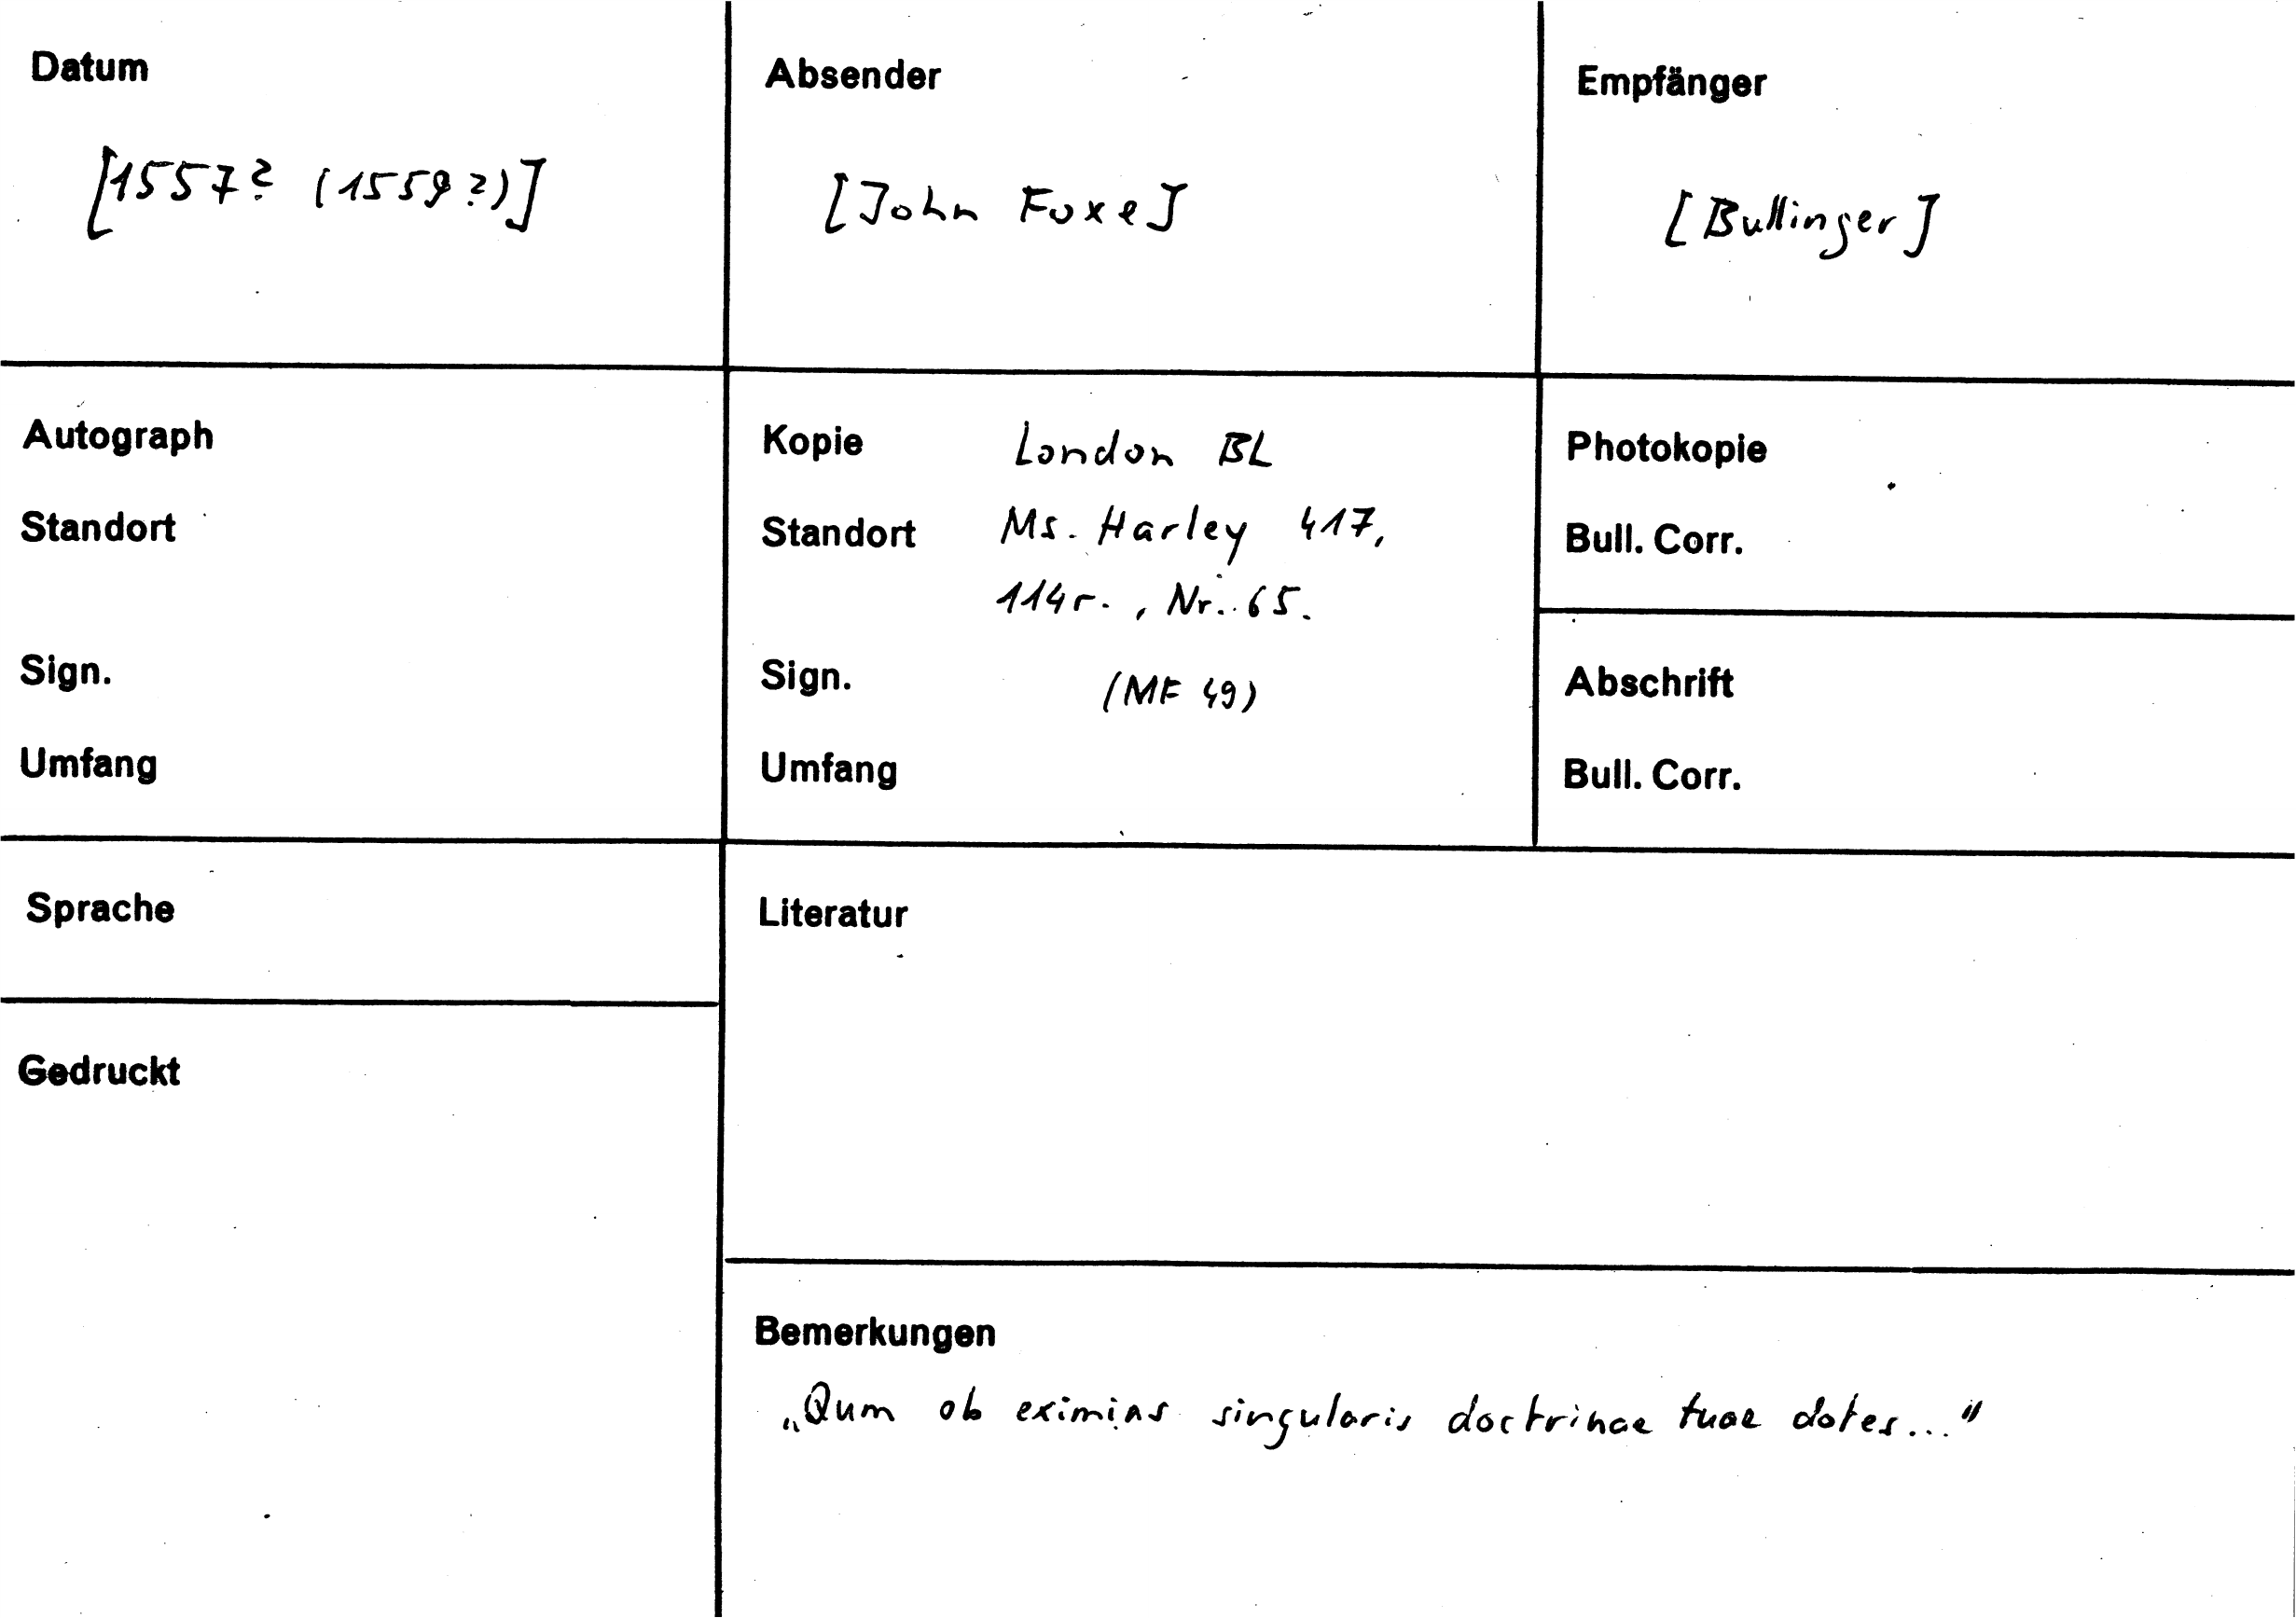 Datum
[1557? (1559?)]
Absender
[John Foxe]
Empfänger
[Bullinger]
Autograph
Standort
Sign.
Umfang
Kopie London BL
Standort Ms. Harley 417,
114r., Nr. 65.
Sign. (MF 49)
Umfang
Photokopie
Bull. Corr.
Abschrift
Bull. Corr.
Sprache
Gedruckt
Literatur
Bemerkungen
„Qum ob eximias singularis doctrinae tuae dotes..."